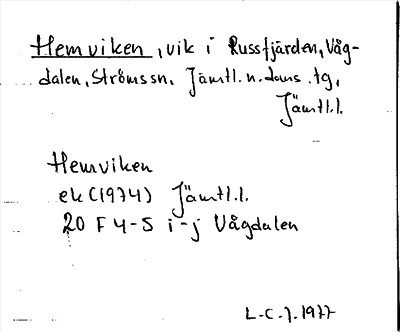 Hemviken, vik i Russfjärden, Våg-
dalen, Ströms sn. Jämtl. n. doms. tg,
Jämtl.l.
Hemviken
ek (1974) Jämtl.l.
20 F 4-5 i-j Vågdalen
L-C.J. 1977